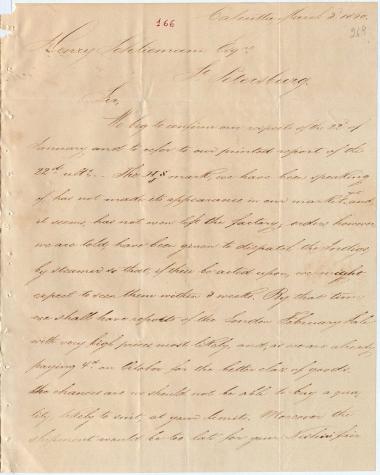 166
Calcutta March 3 18
269
Henry Schliemann Esqr
St Petersburg.
Sir,
We beg to confirm our respects of the 22d of
January and to refer to our printed report of the
22nd ulto. The H S mark, we have been speaking
of has not made its appearance in our market and,
it seems, has not even left the factory, orders however
we are told have been given to dispatch the Indigo
by steamer so that, if these be acted upon, we might
expect to see them within 3 weeks. By that time
we shall have reports of the London February Sale
with very high prices most likely, and, as we are already
paying on October for the better class of goods
the chances are we should not be able to buy a qua
lity likely to suit, at your limits. Moreover the
shipment would be too late for your fair